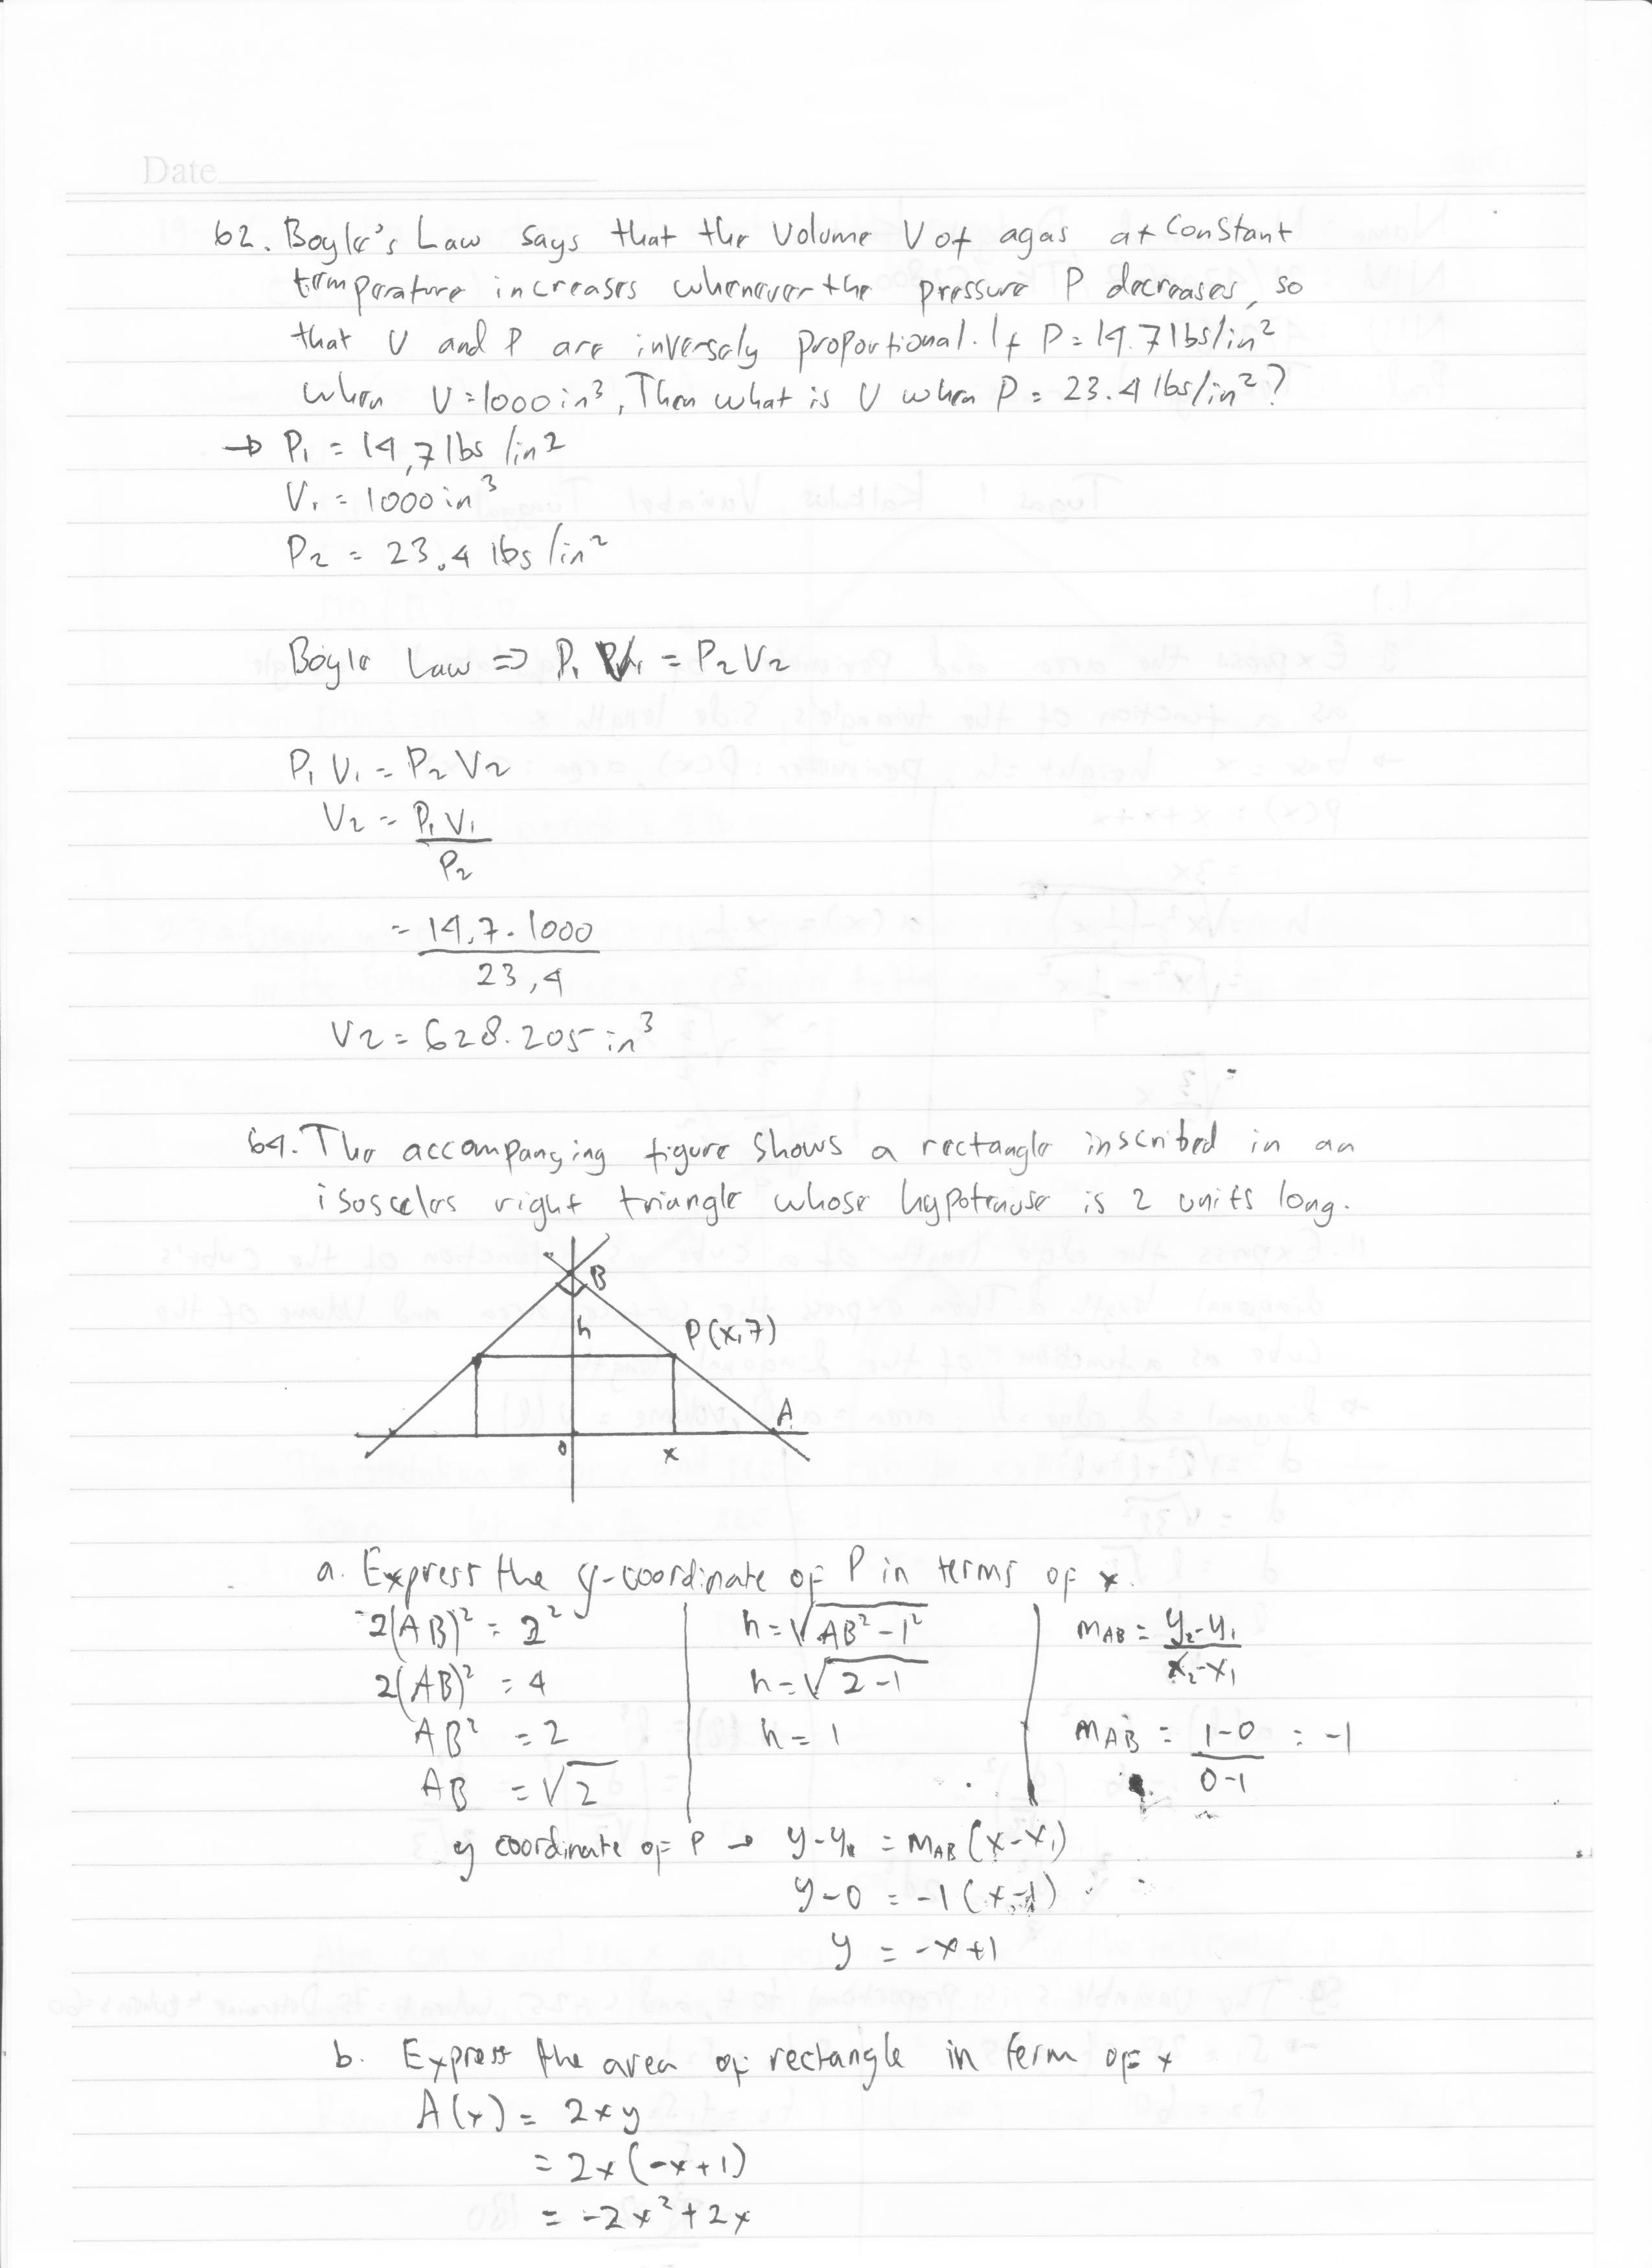 Date
62. Boyle's Law says that the volume V of a gas at constant
temperature increases whenever the pressure P decreases, so
that V and P are inversely proportional. If P = 14.7 lbs/in²
when V = 1000 in³, Then what is V when P = 23.4 lbs/in²?
→ P₁ = 14,7 lbs/in²
V₁ = 1000 in³
P₂ = 23,4 lbs/in²
Boyle Law ⇒ P₁ V₁ = P₂ V₂
P₁ V₁ = P₂ V₂
V₂ = P₁ V₁ / P₂
= 14,7 . 1000 / 23,4
V₂ = 628.205 in³
64. The accompanying figure shows a rectangle inscribed in an
isosceles right triangle whose hypotenuse is 2 units long.
B
h
P(x,7)
A
0 x
a. Express the y-coordinate of P in terms of x.
2(AB)² = 2² | h = √(AB² - 1²) | m_AB = (y₂ - y₁) / (x₂ - x₁)
2(AB)² = 4 | h = √(2 - 1)
AB² = 2 | h = 1 | m_AB = (1 - 0) / (0 - 1) = -1
AB = √2
y coordinate of P → y - y₁ = m_AB (x - x₁)
y - 0 = -1 (x - 1)
y = -x + 1
b. Express the area of rectangle in term of x
A(x) = 2xy
= 2x(-x + 1)
= -2x² + 2x